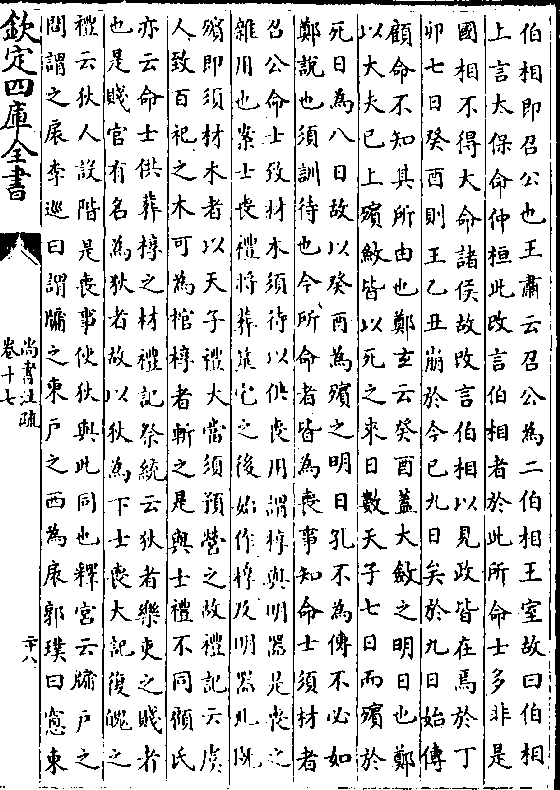 伯相即召公也王肅云召公為二伯相王室故曰伯相
上言太保命仲桓此改言伯相者於此所命士多非是
國相不得大命諸侯故改言伯相以見政皆在焉於丁
卯七日癸酉則王乙丑崩於今已九日矣於九日始傳
顧命不知其所由也鄭玄云癸酉蓋大斂之明日也鄭
以大夫已上殯斂皆以死之來日數天子七日而殯於
死日為八日故以癸酉為殯之明日孔不為傳不必如
鄭說也須訓待也今所命者皆為喪事知命士須材者
召公命士致材木須待以供喪用謂椁與明器是喪之
雜用也案士喪禮將葬筮宅之後始作椁及明器此既
殯即須材木者以天子禮大當須預營之故禮記云虞
人致百祀之木可為棺椁者斬之是與士禮不同顧氏
亦云命士供葬椁之材禮記祭統云狄者樂吏之賤者
也是賤官有名為狄者故以狄為下士喪大記復魄之
禮云狄人設階是喪事使狄與此同也釋宮云牖戶之
間謂之扆李巡曰謂牖之東戶之西為扆郭璞曰窓東
欽定四庫全書
尚書注疏
卷十七
二十八